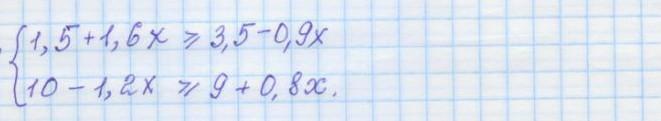 {1,5+1,6x ⩾ 3,5-0,9x
10-1,2x ⩾ 9+0,8x.